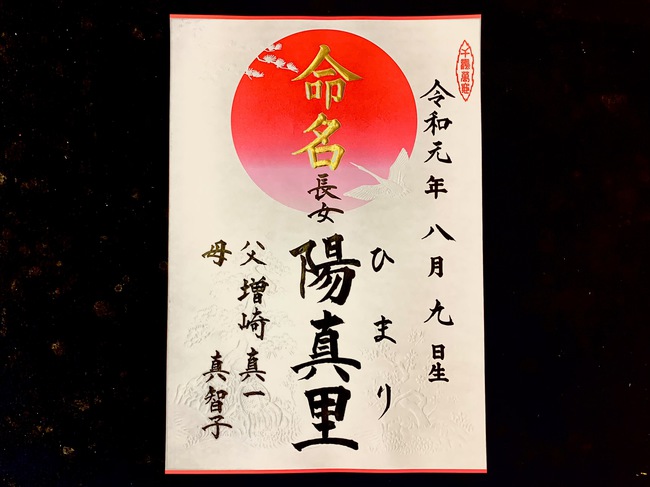 令和元年八月九日生
命名
長女
陽真里
ひまり
父 増崎真一
母 真智子